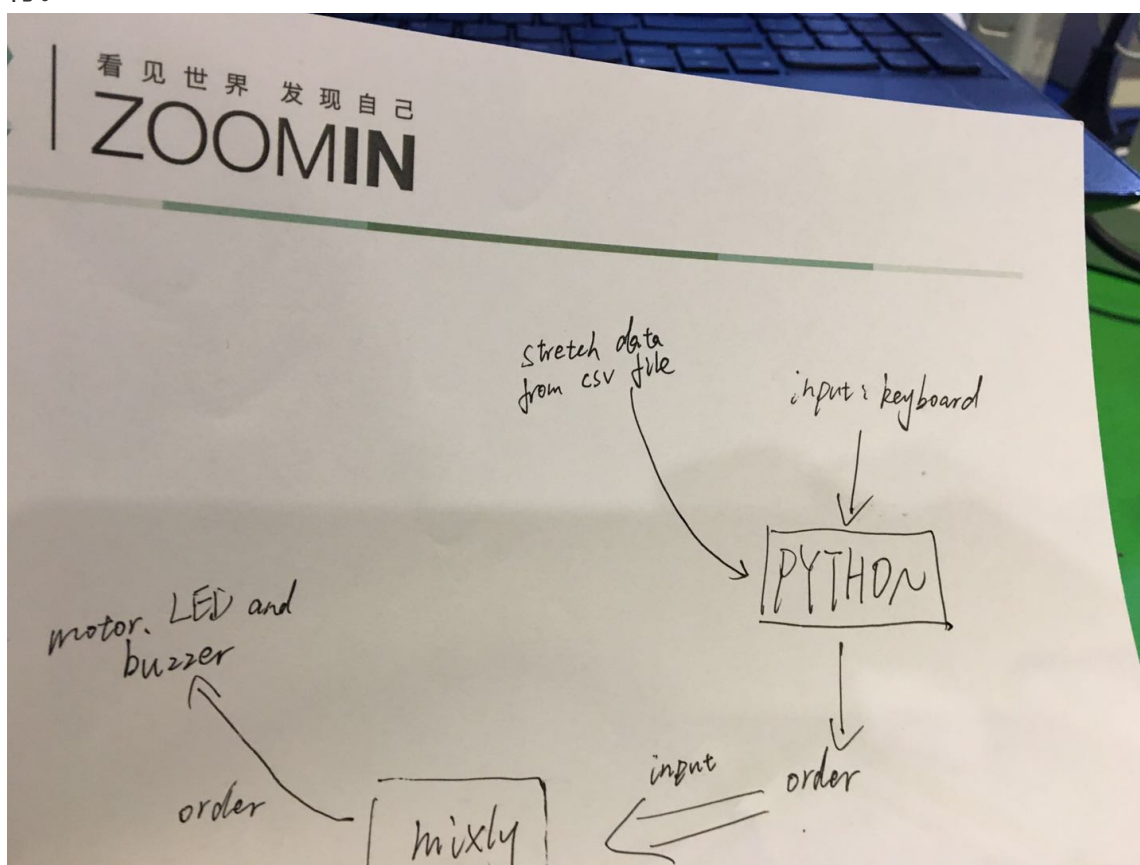 看见世界 发现自己
ZOOMIN
stretch data
from csv file
input: keyboard
PYTHON
motor、LED and
buzzer
input
order
order
mixly